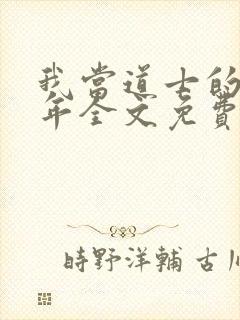 我當道士的
年全文免費
時野洋輔 古川